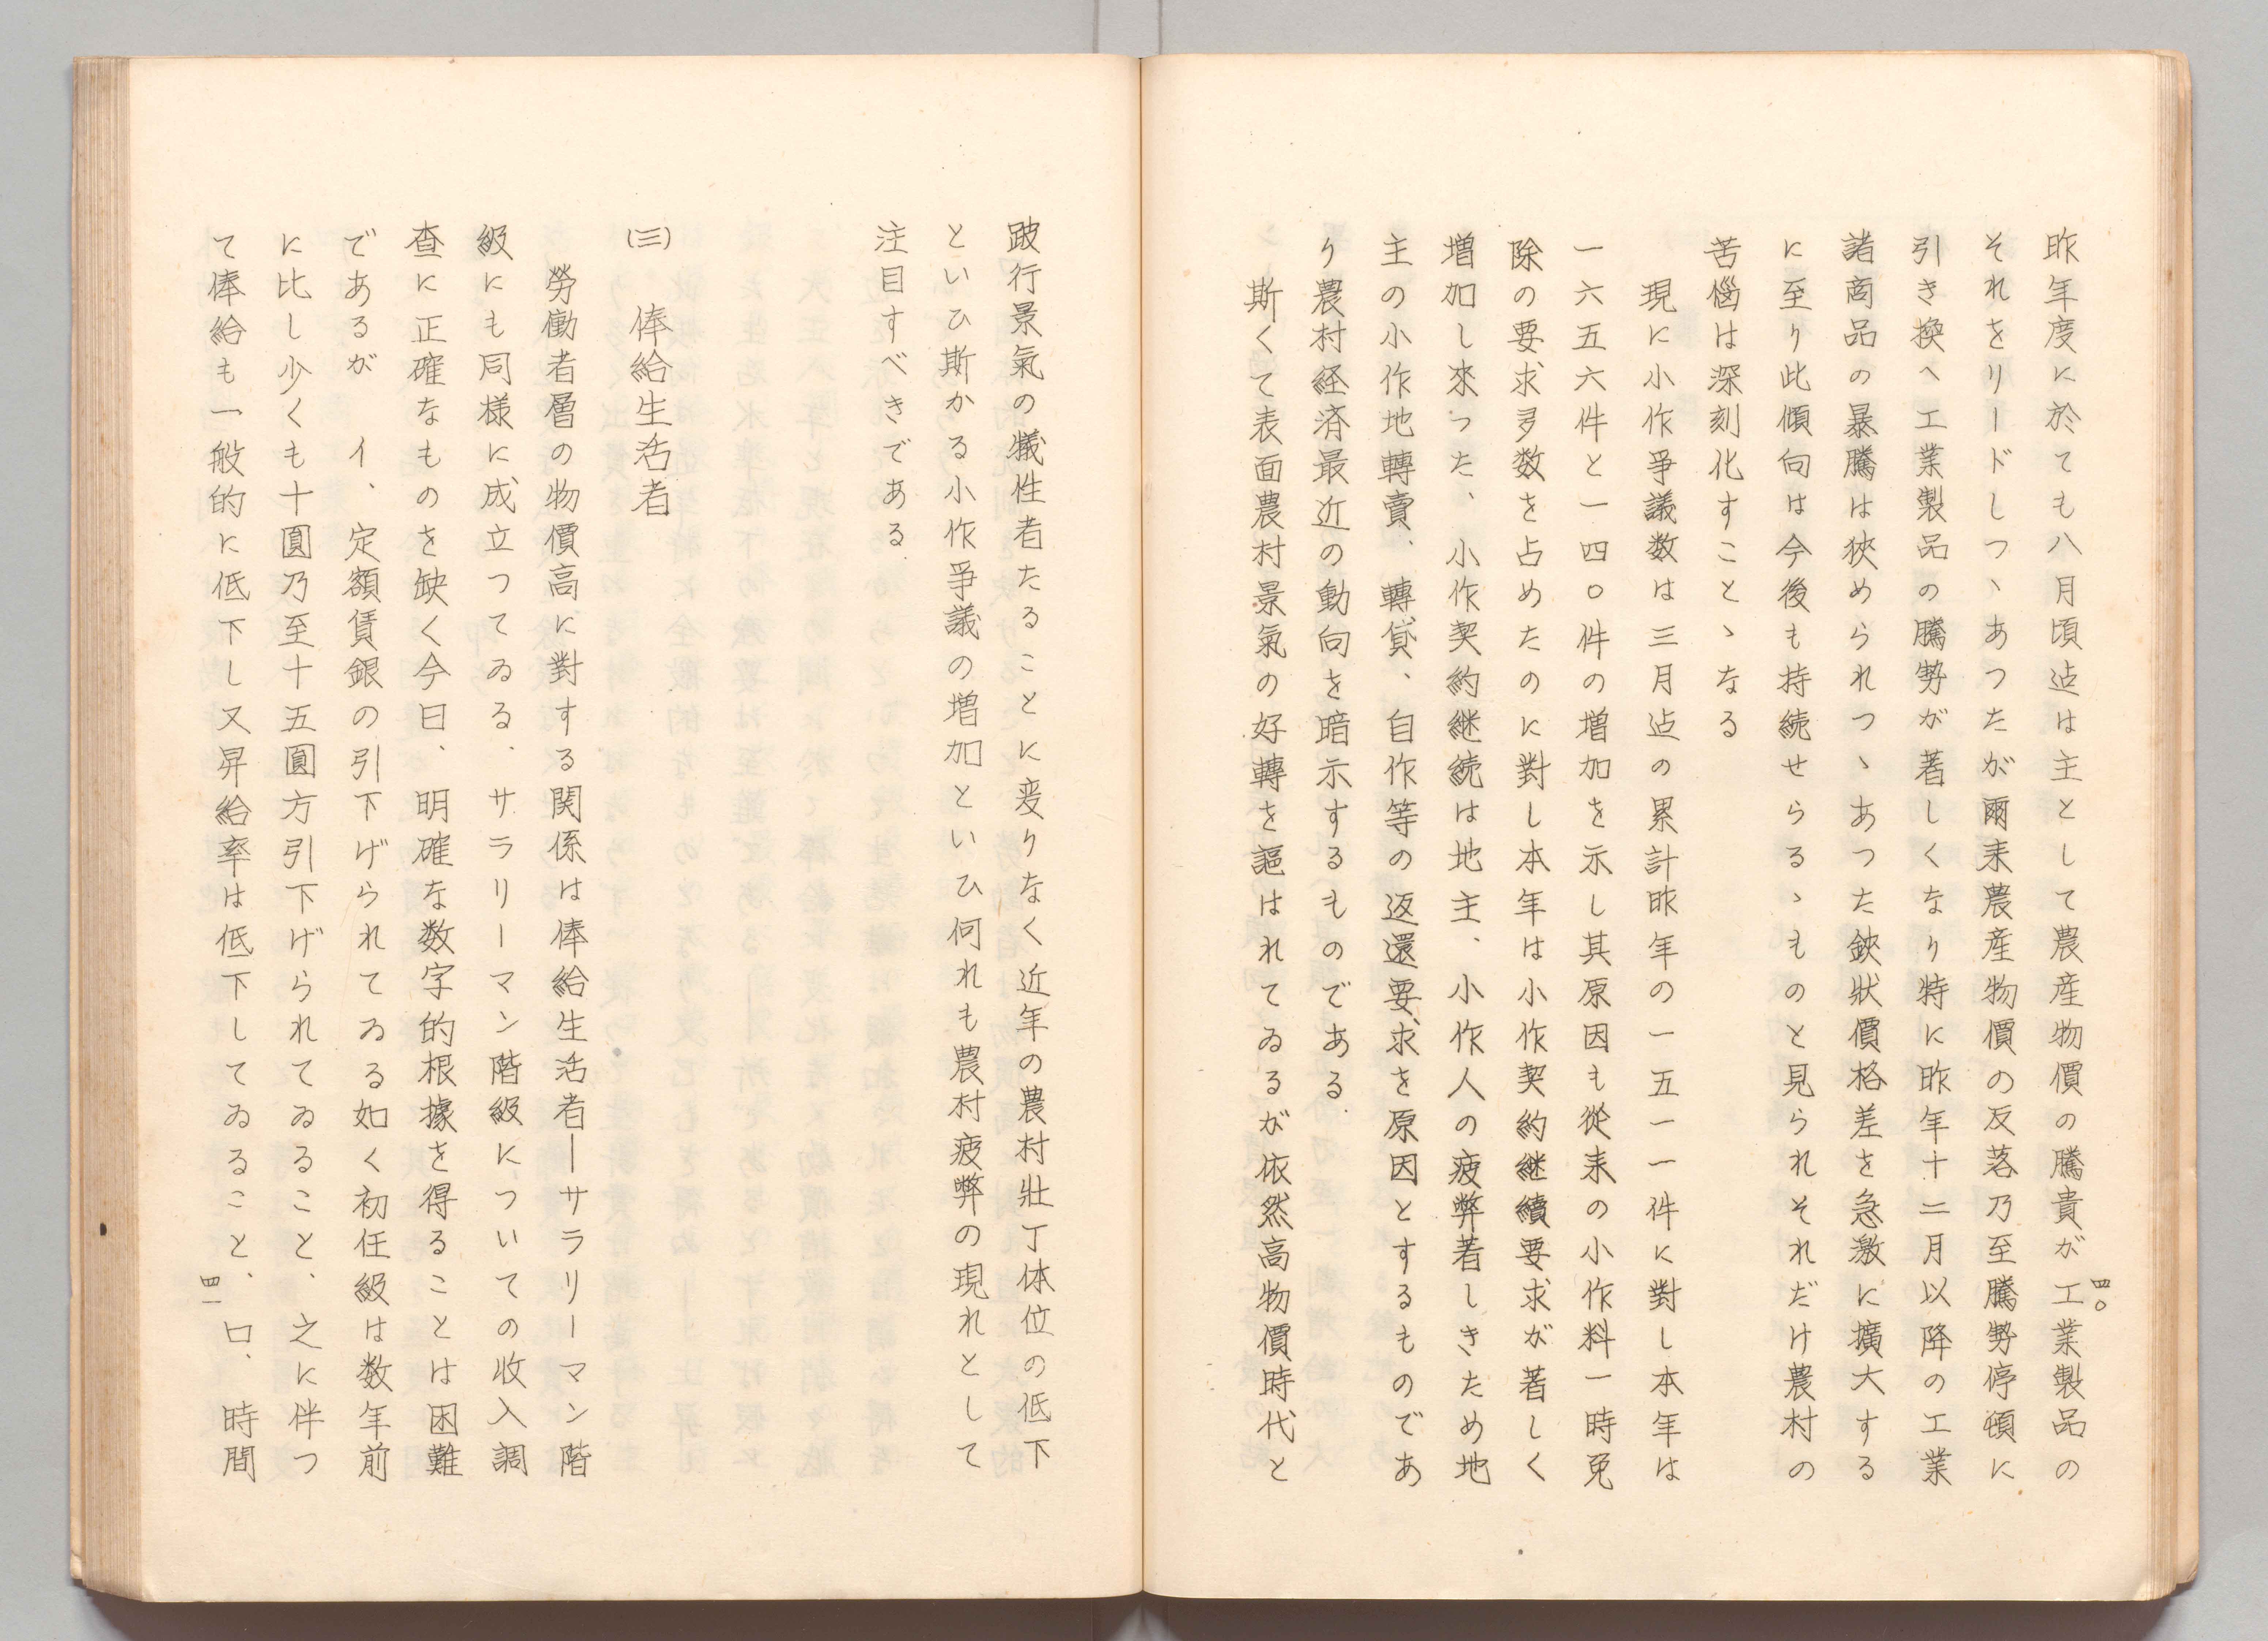 昨年度に於ても八月頃迠は主として農産物價の騰貴が工業製品の
それをリードしつヽあつたが爾来農産物價の反落乃至騰勢停頓に
引き換へ工業製品の騰勢が著しくなり特に昨年十二月以降の工業
諸商品の暴騰は狹められつヽあつた鋏狀價格差を急激に擴大する
に至り此傾向は今後も持続せらるゝものと見られそれだけ農村の
苦惱は深刻化すことヽなる
現に小作爭議数は三月迠の累計昨年の一五一一件に對し本年は
一六五六件と一四〇件の増加を示し其原因も從来の小作料一時免
除の要求多数を占めたのに對し本年は小作契約継續要求が著しく
増加し來つた、小作契約継続は地主、小作人の疲弊若しきため地
主の小作地轉賣、轉貸、自作等の返還要求を原因とするものであ
り農村経済最近の動向を暗示するものである.
斯くて表面農村景氣の好轉を謳はれてゐるが依然高物價時代と
四〇
跛行景氣の犠性者たることに変りなく近年の農村壯丁体位の低下
といひ斯かる小作爭議の増加といひ何れも農村疲弊の現れとして
注目すべきである.
(三) 俸給生活者
勞働者層の物價高に對する関係は俸給生活者ーサラリーマン階
級にも同様に成立つてゐる、サラリーマン階級についての收入調
査に正確なものを缺く今日、明確な数字的根據を得ることは困難
であるが イ、定額賃銀の引下げられてゐる如く初任級は数年前
に比し少くも十圓乃至十五圓方引下げられてゐること、之に伴つ
て俸給も一般的に低下し又昇給率は低下してゐること、ロ、時間
四一